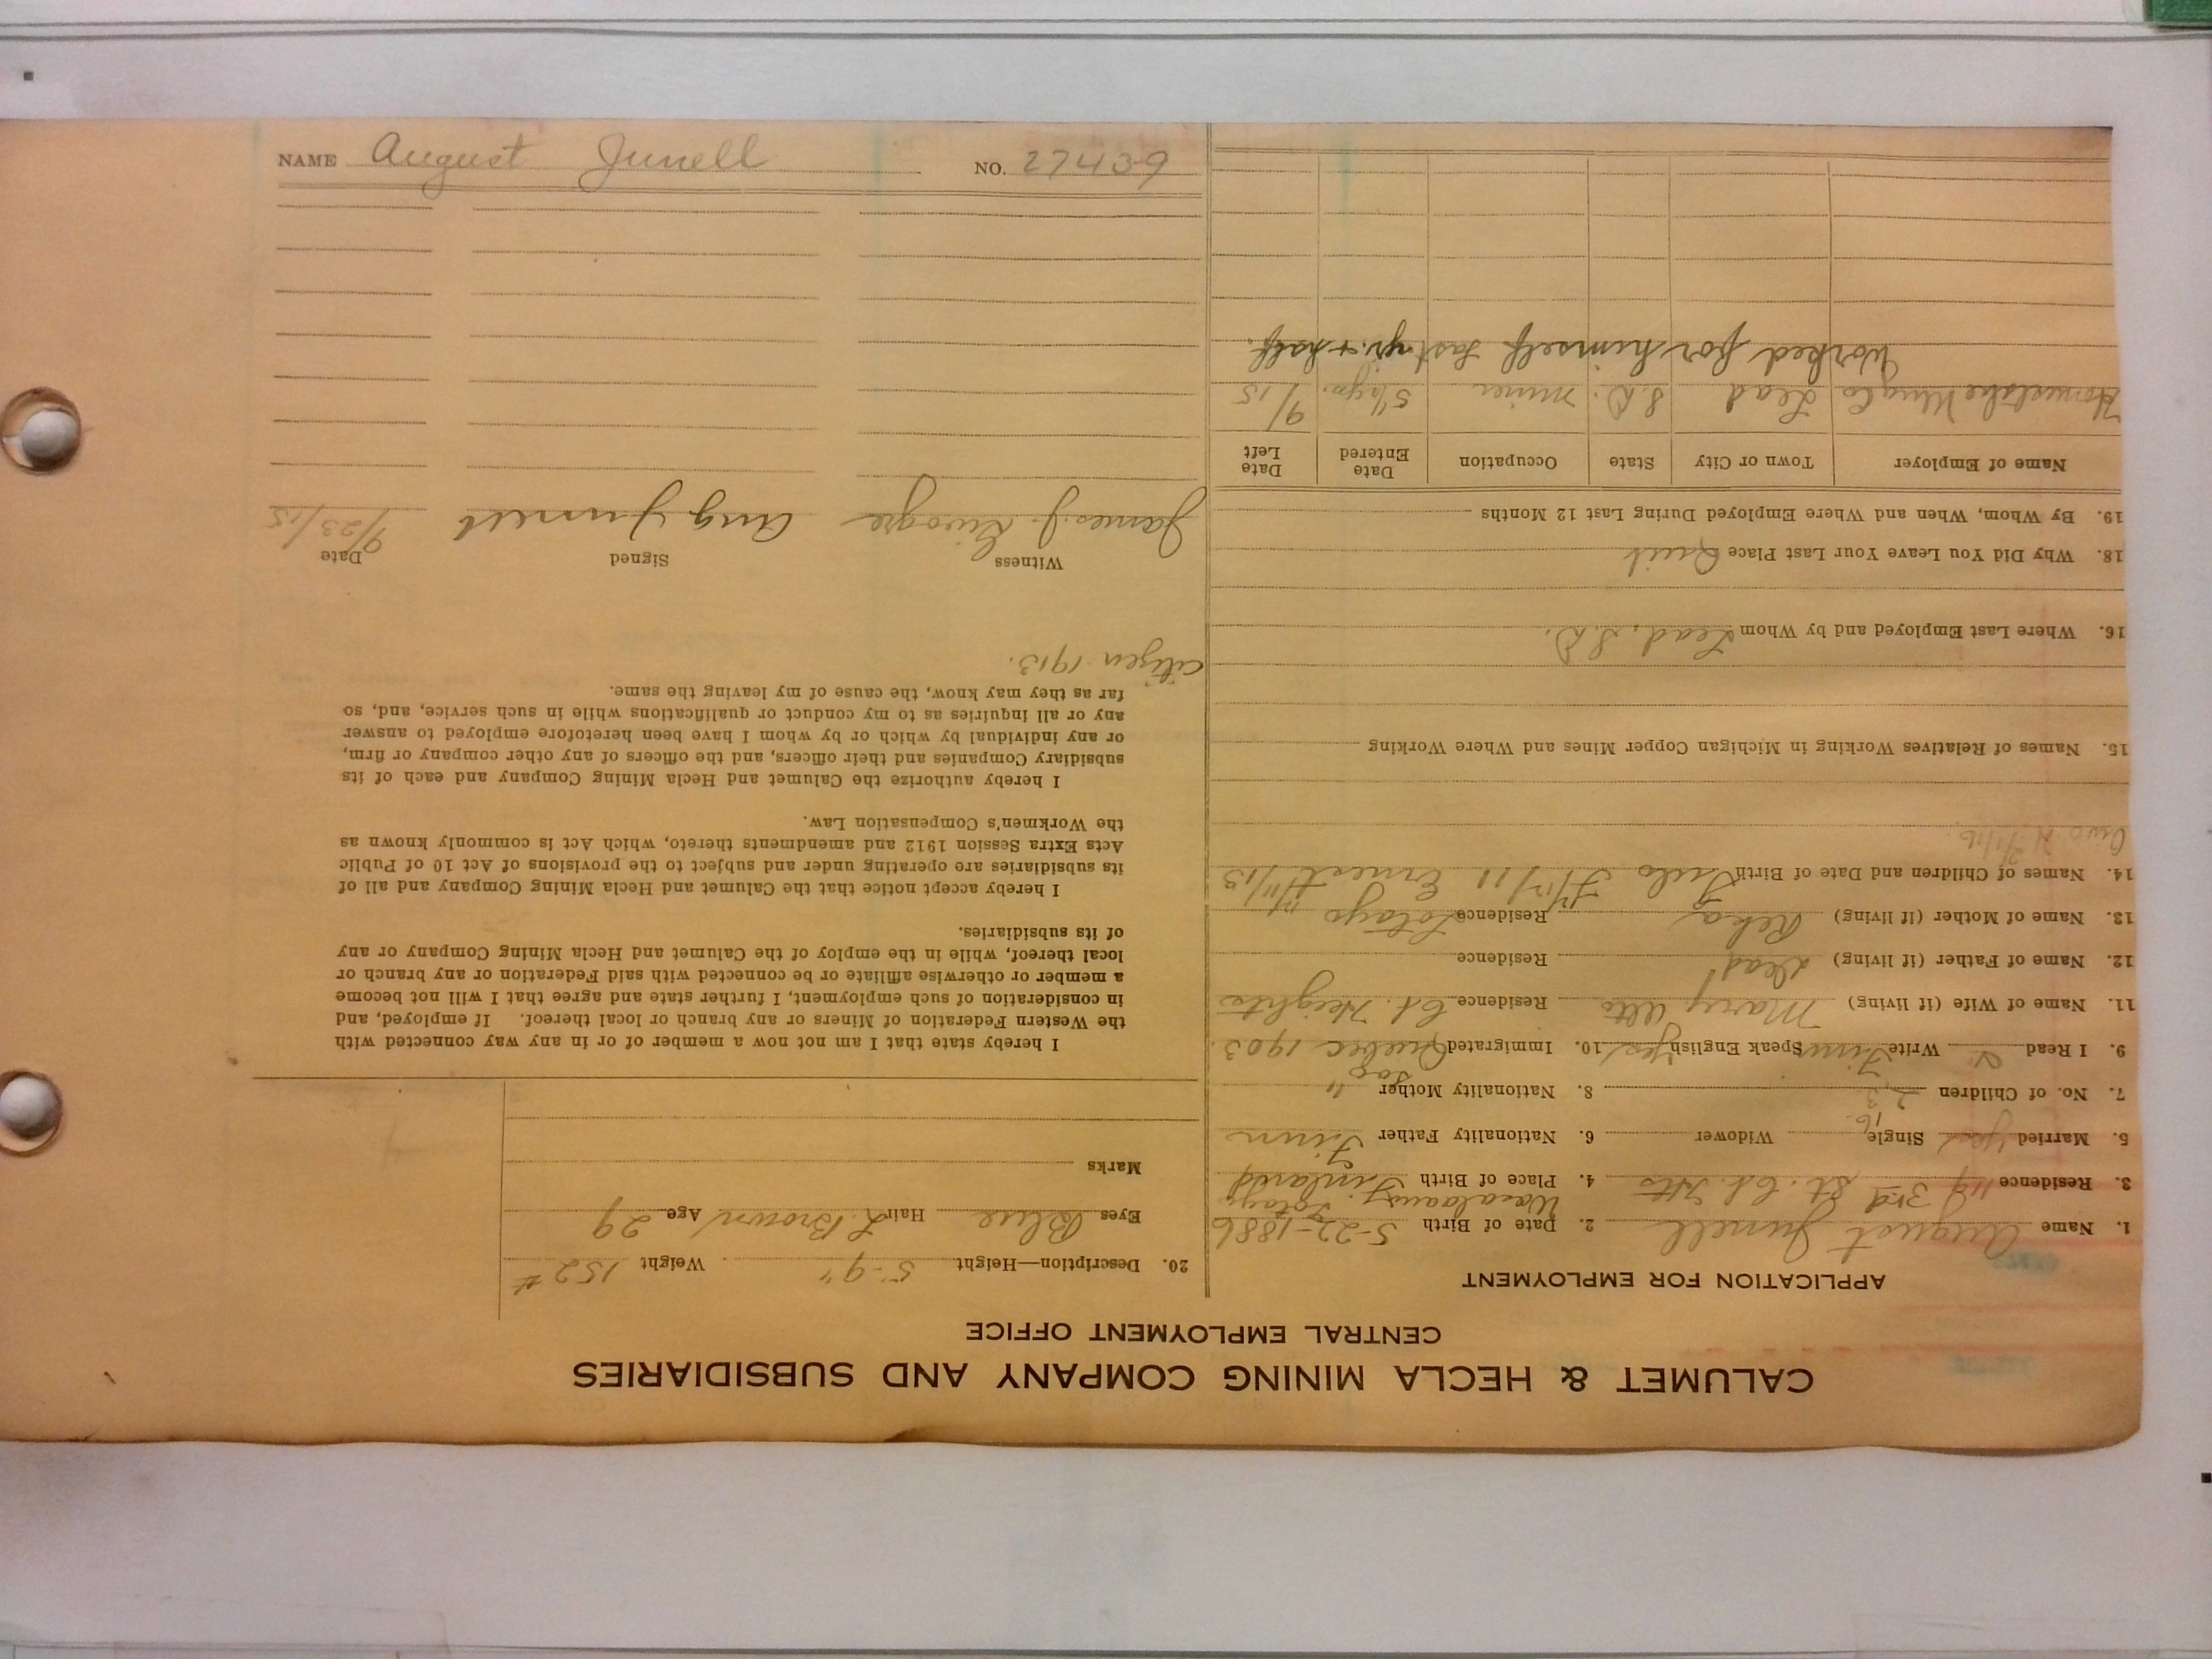 CALUMET & HECLA MINING COMPANY AND SUBSIDIARIES
CENTRAL EMPLOYMENT OFFICE
APPLICATION FOR EMPLOYMENT
1. Name August Junell 2. Date of Birth 5-22-1886
3. Residence 119 3rd St. Cl. Hts 4. Place of Birth Finland
5. Married Yes Single Widower 6. Nationality Father Finn
7. No. of Children 2 3 8. Nationality Mother "
9. I Read Write Finn Speak English Yes 10. Immigrated Quebec 1903.
11. Name of Wife (if living) Mary Residence Cl. Heights
12. Name of Father (if living) Dead Residence
13. Name of Mother (if living) Residence
14. Names of Children and Date of Birth Ernest 11/13
15. Names of Relatives Working in Michigan Copper Mines and Where Working
16. Where Last Employed and by Whom Lead, S.D.
18. Why Did You Leave Your Last Place Quit
19. By Whom, When and Where Employed During Last 12 Months
Name of Employer Town or City State Occupation Date Entered Date Left
Homestake Mng Co Lead S.D. miner 9/15
Worked for himself last yr. + half.
20. Description—Height 5'-9" Weight 152 #
Eyes Blue Hair L. Brown Age 29
Marks
I hereby state that I am not now a member of or in any way connected with
the Western Federation of Miners or any branch or local thereof. If employed, and
in consideration of such employment, I further state and agree that I will not become
a member or otherwise affiliate or be connected with said Federation or any branch or
local thereof, while in the employ of the Calumet and Hecla Mining Company or any
of its subsidiaries.
I hereby accept notice that the Calumet and Hecla Mining Company and all of
its subsidiaries are operating under and subject to the provisions of Act 10 of Public
Acts Extra Session 1912 and amendments thereto, which Act is commonly known as
the Workmen's Compensation Law.
I hereby authorize the Calumet and Hecla Mining Company and each of its
subsidiary Companies and their officers, and the officers of any other company or firm,
or any individual by which or by whom I have been heretofore employed to answer
any or all inquiries as to my conduct or qualifications while in such service, and, so
far as they may know, the cause of my leaving the same.
citizen 1913.
Witness Signed Date
James J. Aug Junell 9/23/15
NAME August Junell NO. 27439